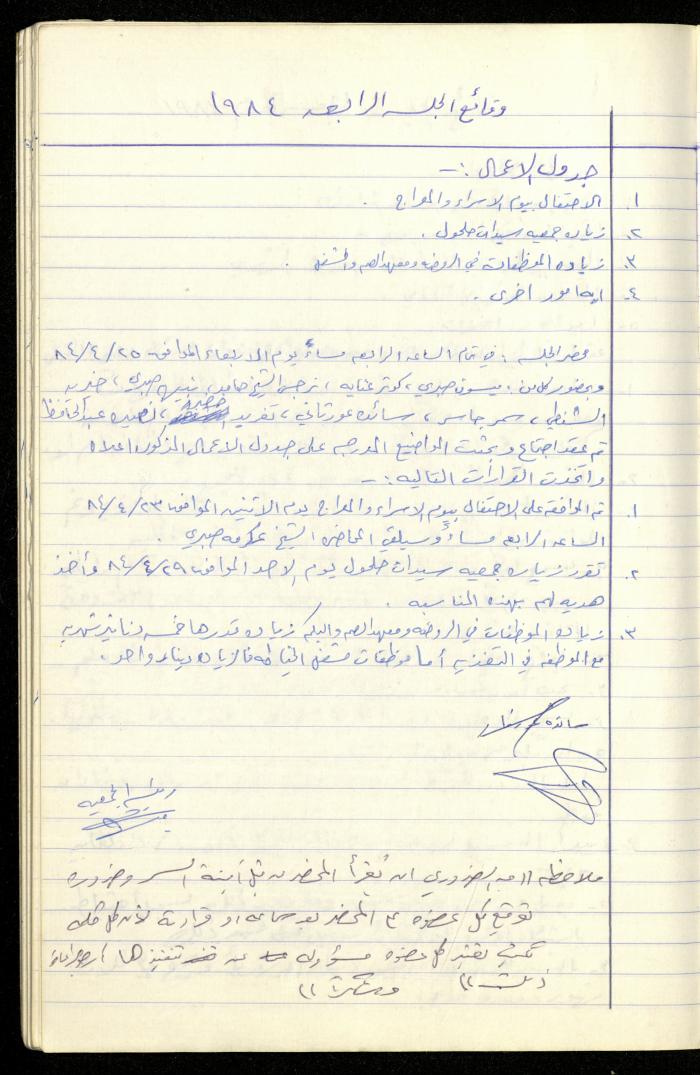 وقائع الجلسه الرابعه ١٩٨٤
جدول الاعمال :ـ
١. الاحتفال بيوم الاسراء والمعراج .
٢. زياره جمعيه سيدات حلحول .
٣. زياده الموظفات في الروضه ومعهد الصم والمشغل .
٤. ايه امور اخرى .
محضر الجلسه : في تمام الساعه الرابعه مساءً يوم الاربعاء الموافق ٨٤/٤/٢٥
وبحضور كل من : ميسون صبري ، كوثر عنايه ، نرجس الشيخ حامد ، صبري ، خديجه
الشنطي ، سمر جاسر ، سائده عورتاني ، تغريد ، نصيره عبد الحافظ
تم عقد اجتماع وبحثت المواضيع المدرجه على جدول الاعمال المذكور اعلاه
واتخذت القرارات التاليه :ـ
١. تم الموافقه على الاحتفال بيوم الاسراء والمعراج يوم الاثنين الموافق ٨٤/٤/٢٣
الساعه الرابعه مساءً وسيلقي المحاضره الشيخ عكرمه صبري .
٢. تقرر زياره جمعيه سيدات حلحول يوم الاحد الموافق ٨٤/٤/٢٩ وأخذ
هديه لهم بهذه المناسبه .
٣. زياده الموظفات في الروضه ومعهد الصم والبكم زياده قدرها خمسه دنانير شهريه
مع الموظفه في التغذيه أما موظفات مشغل الخياطه فالزياده دينار واحد .
سائده عورتاني
رئيسه الجمعيه
ملاحظه )) من الضروري ان يُقرأ المحضر من قبل أمينة السر وضروره
توقيع كل عضوه ع المحضر بعد سماعه او قراءته لأن كل كلمه
تكتب تعتبر كل عضوه مسؤوله عن تنفيذها
ذلك )) وشكراً ))